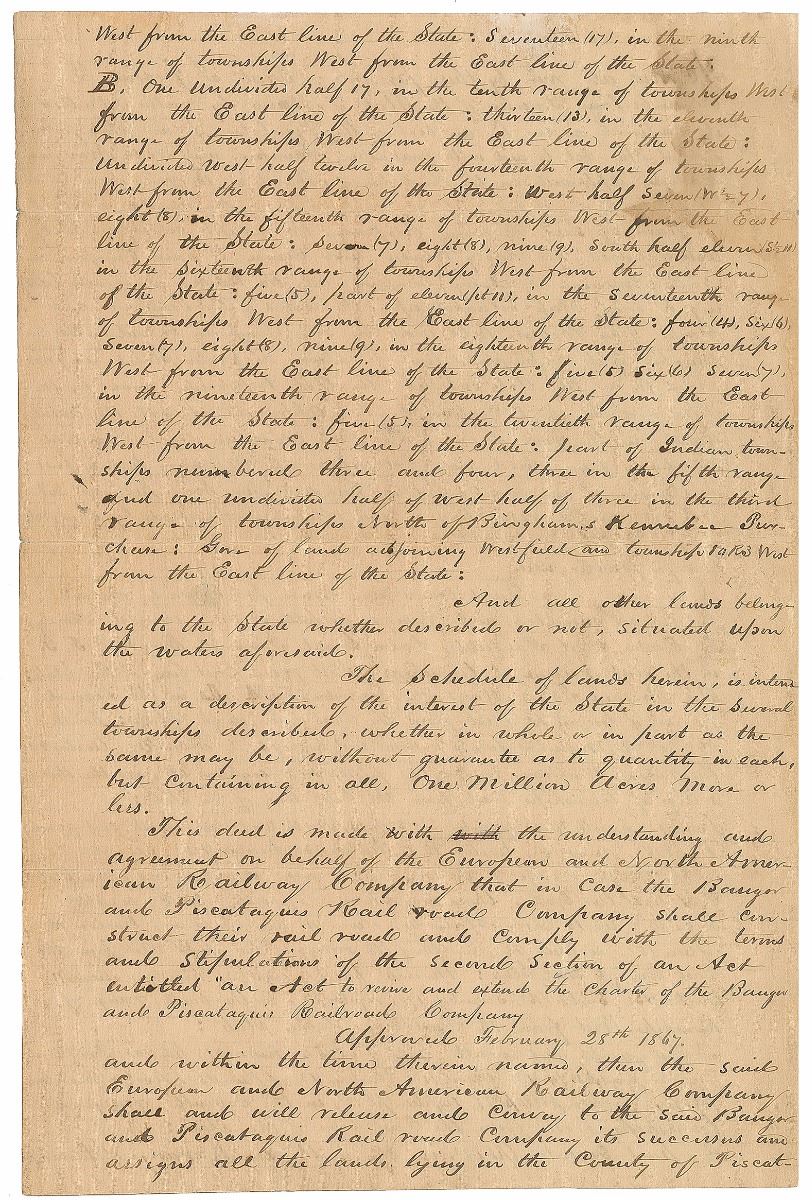 West from the East line of the State: Seventeen (17), in the ninth
range of townships West from the East line of the State:
B, One undivided half 17, in the tenth range of townships West
from the East line of the State: thirteen (13), in the eleventh
range of townships West from the East line of the State:
Undivided West half twelve in the fourteenth range of townships
West from the East line of the State: West half Seven (W ½ 7),
eight (8), in the fifteenth range of townships West from the East
line of the State: Seven (7), eight (8), nine (9), South half eleven (S ½ 11)
in the Sixteenth range of townships West from the East line
of the State: five (5), part of eleven (pt 11), in the Seventeenth range
of townships West from the East line of the State: four (4), Six (6),
Seven (7), eight (8), nine (9), in the eighteenth range of townships
West from the East line of the State: five (5) Six (6) Seven (7),
in the nineteenth range of townships West from the East
line of the State: five (5), in the twentieth range of townships
West from the East line of the State: part of Indian town-
ships numbered three and four, three in the fifth range
and one undivided half of West half of three in the third
range of townships North of Bingham,s Kennebec Pur-
chase: Gore of land adjoining Westfield and township 1 a R3 West
from the East line of the State:
And all other lands belong-
ing to the State whether described or not, situated upon
the waters aforesaid.
The Schedule of lands herein, is intend
ed as a description of the interest of the State in the several
townships described, whether in whole or in part as the
same may be, without guarantee as to quantity in each,
but containing in all, One Million Acres More or
less.
This deed is made with with the understanding and
agreement on behalf of the European and North Amer-
ican Railway Company that in case the Bangor
and Piscataquis Rail road Company shall con-
struct their rail road and comply with the terms
and stipulations of the second Section of an Act
entitled "an Act to revive and extend the charter of the Bangor
and Piscataquis Railroad Company
Approved February 28th 1867.
and within the time therein named, then the said
European and North American Railway Company
shall and will release and convey to the said Bangor
and Piscataquis Rail road Company its successors and
assigns all the lands lying in the County of Piscat-